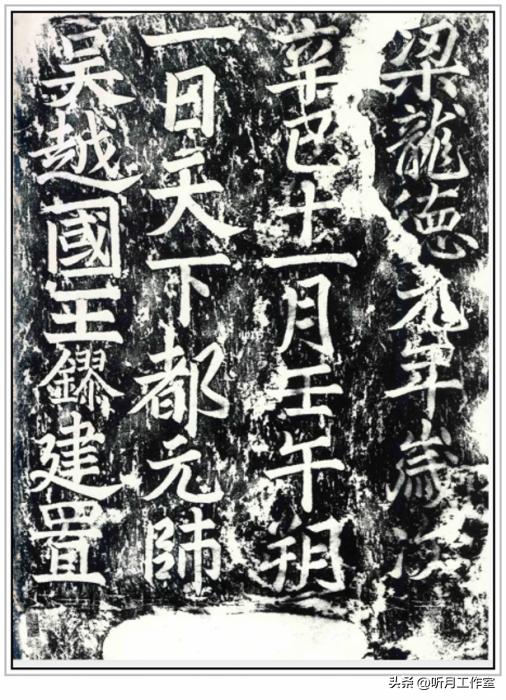 梁龍德元年歲次
辛巳十一月壬午朔
一日天下都元帥
吳越國王鏐建置
头条 @听月工作室